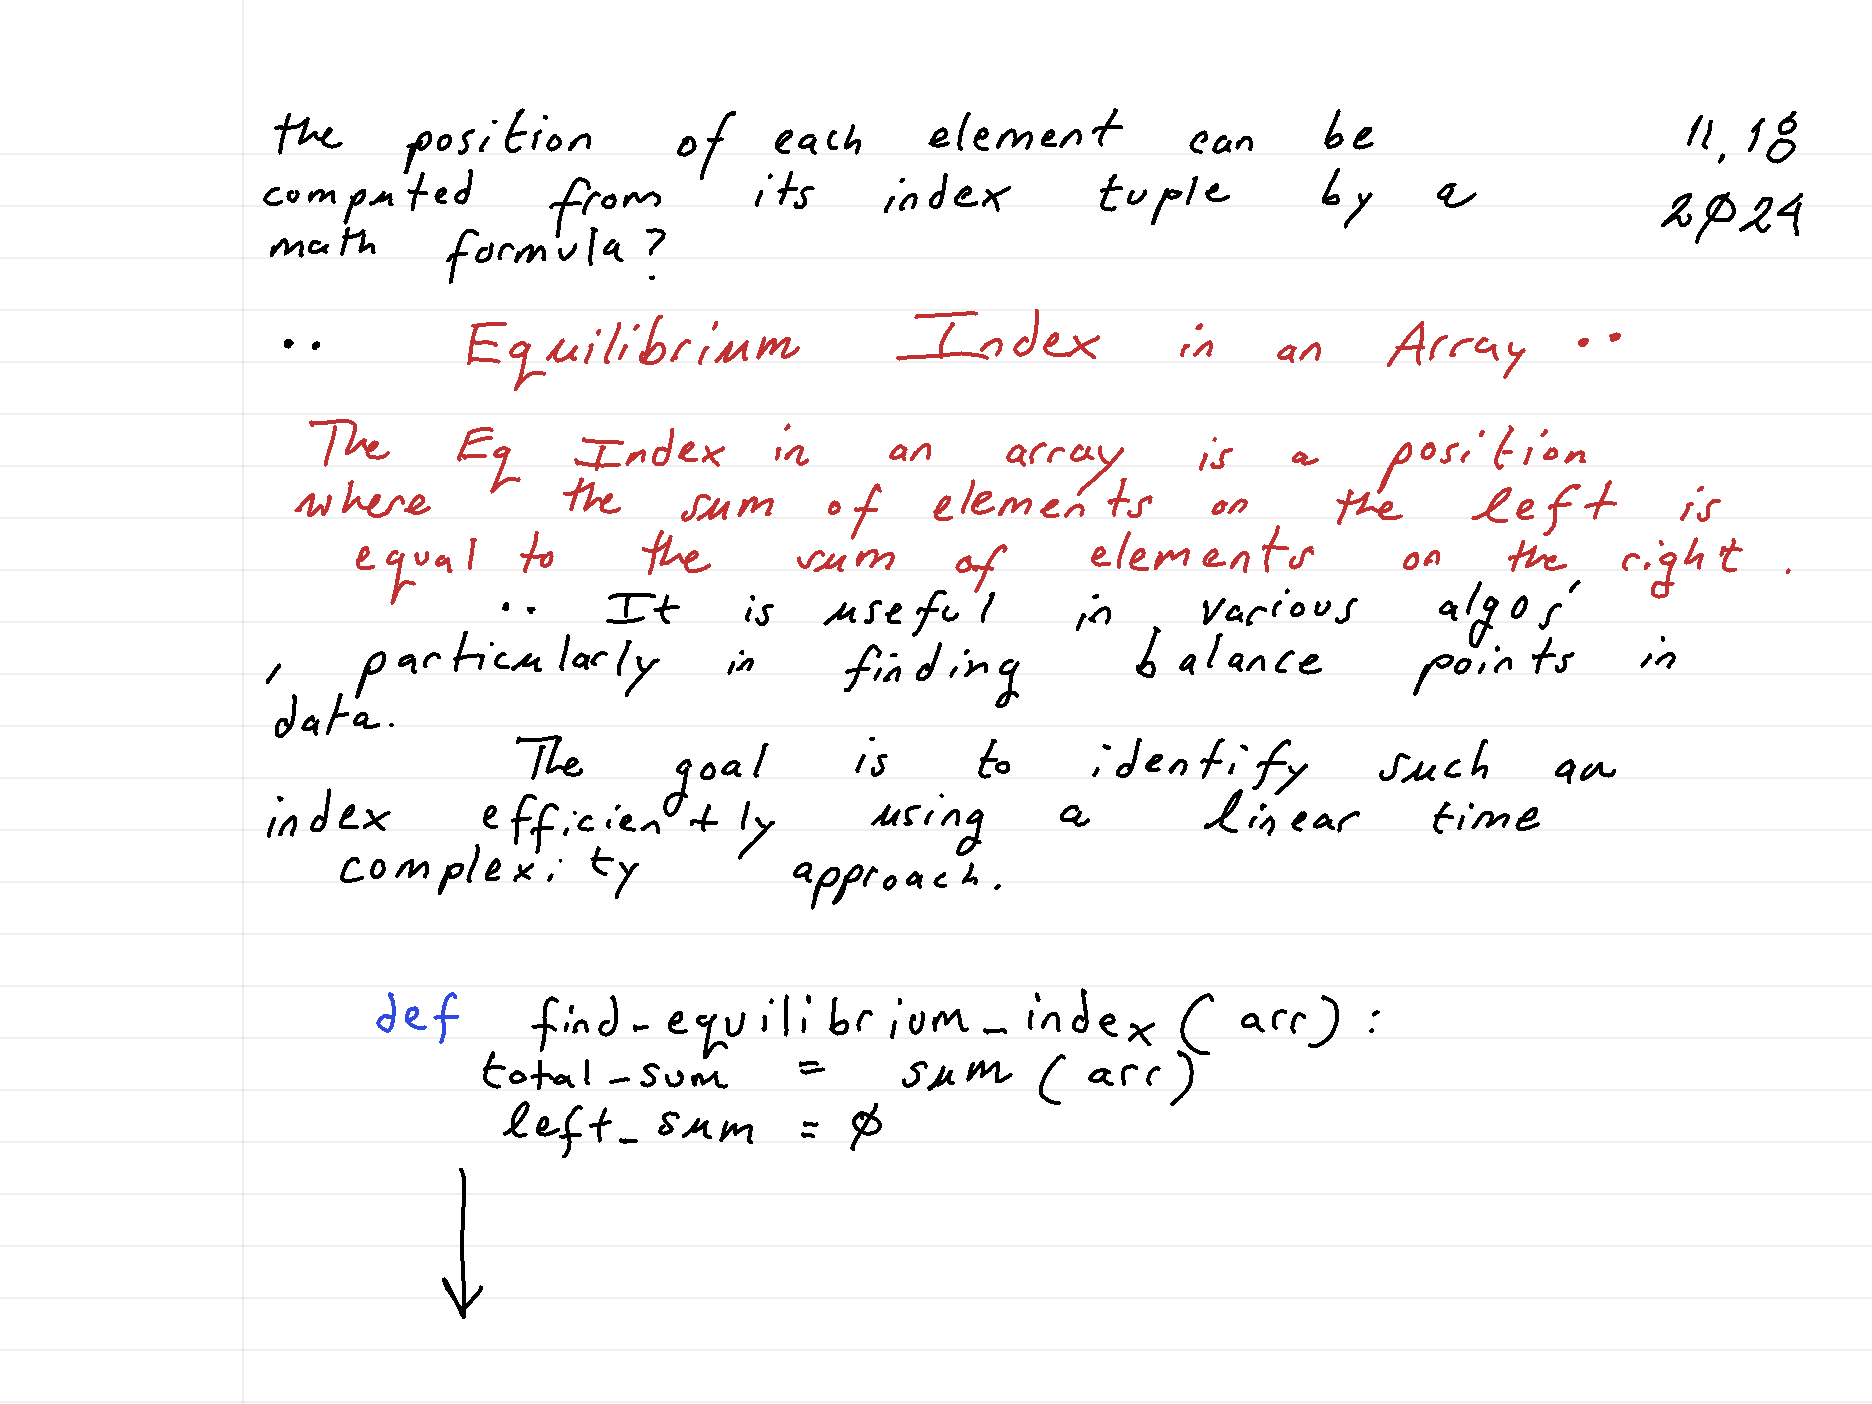 the position of each element can be 11, 18
computed from its index tuple by a 2024
math formula?
.. Equilibrium Index in an Array ..
The Eq Index in an array is a position
where the sum of elements on the left is
equal to the sum of elements on the right.
.. It is useful in various algos'
, particularly in finding balance points in
data.
The goal is to identify such an
index efficiently using a linear time
complexity approach.
def find_equilibrium_index(arr):
total_sum = sum(arr)
left_sum = 0